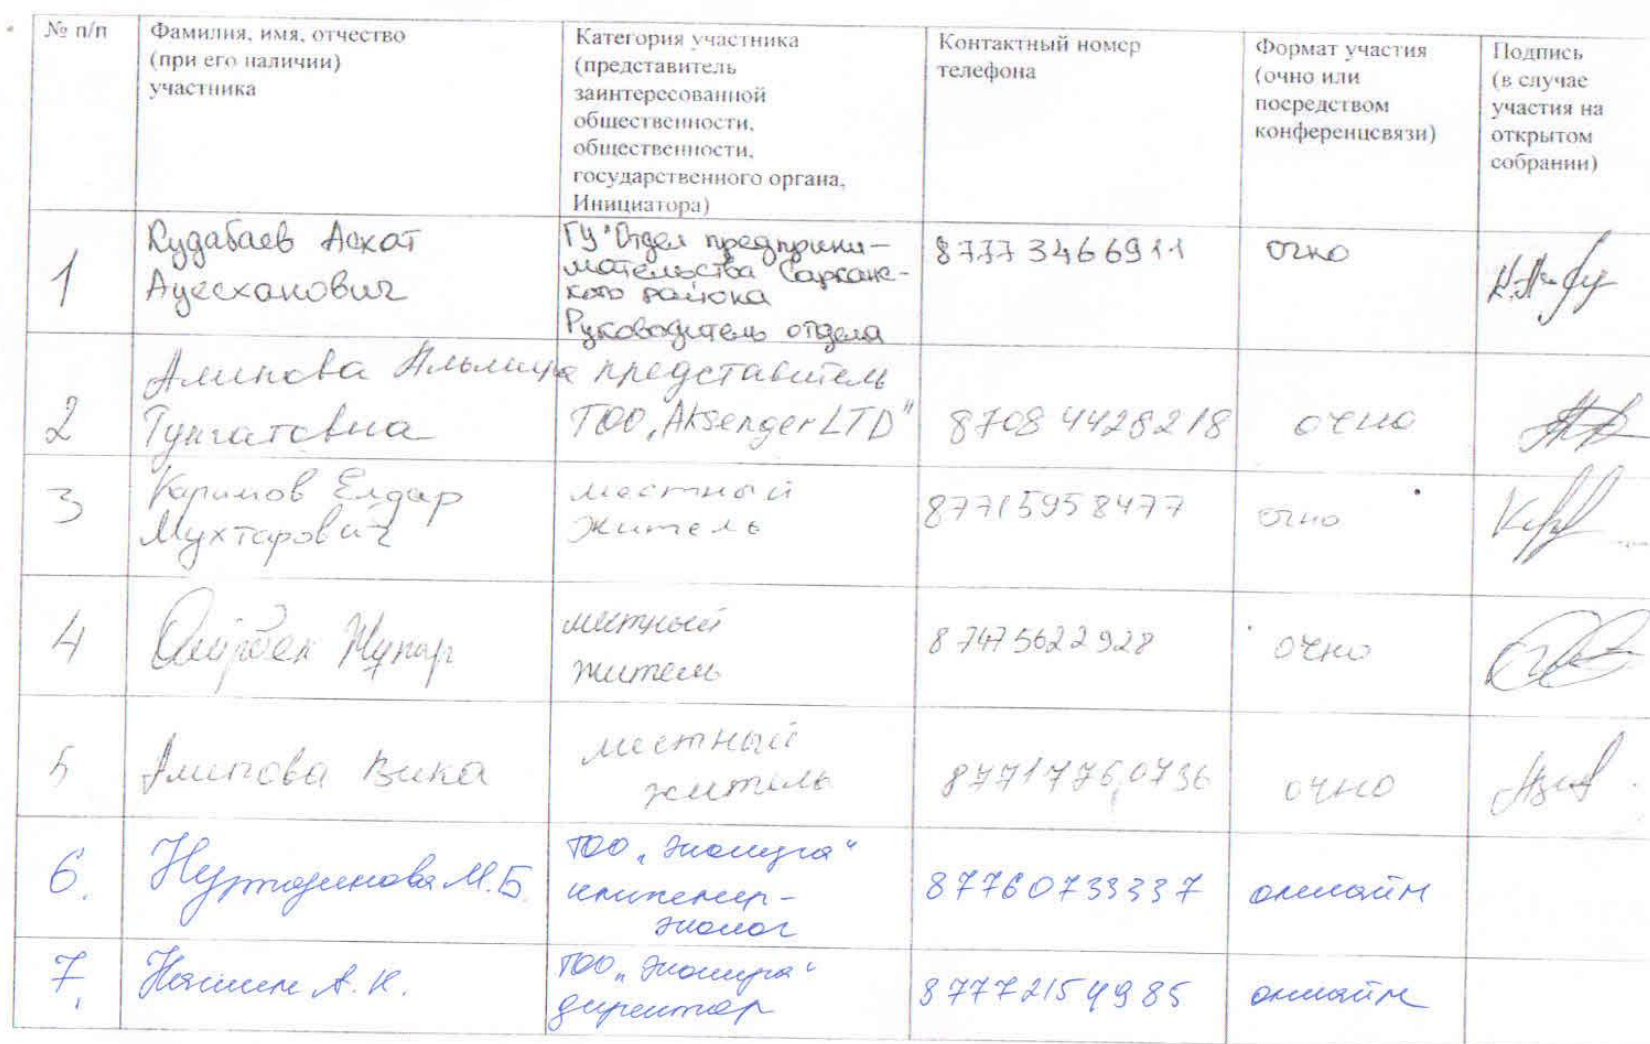 № п/п
Фамилия, имя, отчество
(при его наличии)
участника
Категория участника
(представитель
заинтересованной
общественности,
общественности,
государственного органа,
Инициатора)
Контактный номер
телефона
Формат участия
(очно или
посредством
конференцсвязи)
Подпись
(в случае
участия на
открытом
собрании)
1
Кудабаев Асхат
Ауесханович
ГУ "Отдел предприни-
мательства Саркандс-
кого района
Руководитель отдела
87773466911
очно
2
Алипова Альмира
Тунгатовна
представитель
ТОО "Aksenger LTD"
87084428218
очно
3
Каримов Елдар
Мухтарович
местный
житель
87715958477
очно
4
Жупар
местный
житель
87475622928
очно
5
Алипова Вика
местный
житель
87717760736
очно
6.
М.Б.
ТОО
инженер-
эколог
87760733337
онлайн
7.
А.К.
ТОО
директор
87772154985
онлайн